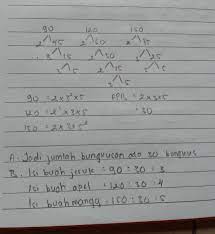 90 120 150
2 45 2 60 2 75
3 15 2 30 3 25
3 5 2 15 5 5
3 5
90 = 2 x 3² x 5 FPB = 2 x 3 x 5
120 = 2³ x 3 x 5 = 30
150 = 2 x 3 x 5²
A. Jadi jumlah bungkusan ada 30 bungkus
B. Isi buah jeruk = 90 : 30 = 3
Isi buah apel = 120 : 30 = 4
Isi buah mangga = 150 : 30 = 5